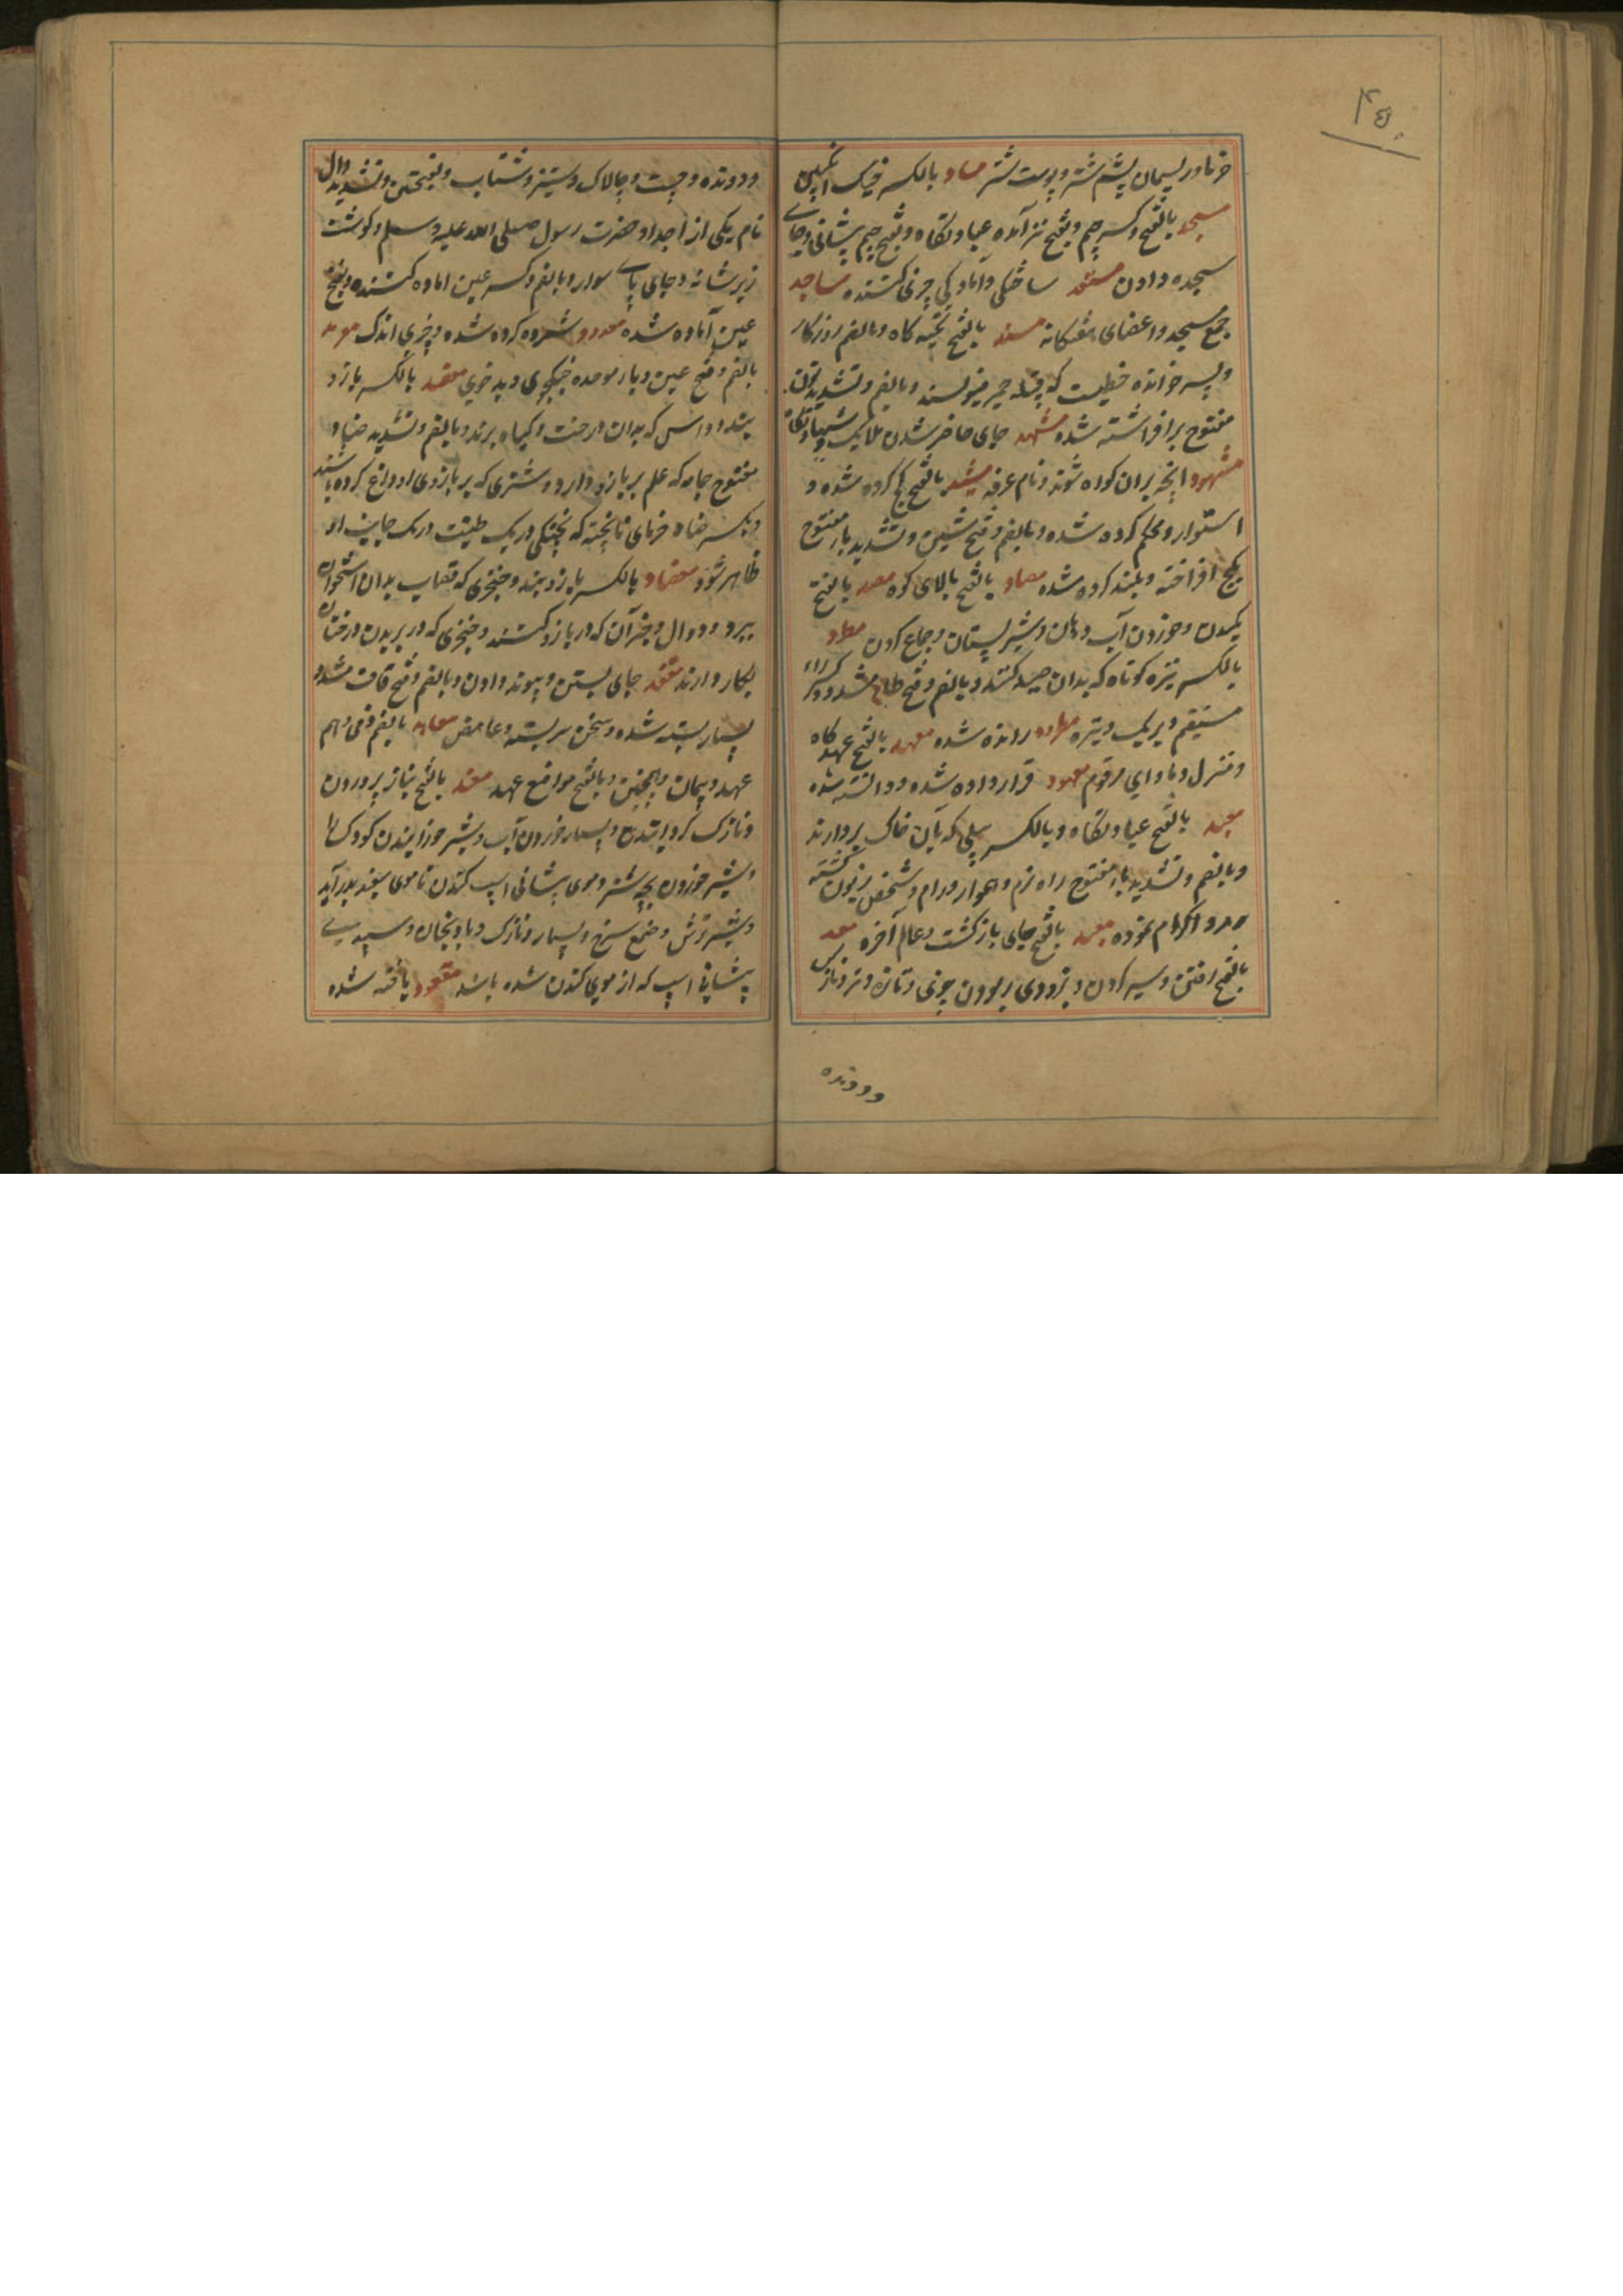 ۴۵۰
خرما و ریسمان پشم شتر و پوست شتر مساد بالکسر خیک انگبین
مسجد بالفتح و کسر جیم و بفتح نیز آمده عبادتگاه و بفتح جیم پیشانی و جای
سجده دادن مستعد ساختگی و آمادگی چیزی کننده مساجد
جمع مسجد و اعضای هفتگانه مسند بالفتح تکیه گاه و بالضم روزگار
و پسر خوانده خطیست که قبیله حمیر مینویسند و بالضم و تشدید نون
مفتوح برافراشته شده مشهد جای حاضر شدن ملایک و
مشهود انچه بران گواه شوند و نام عرفه مشید بالفتح گچ کرده شده و
استوار و محکم کرده شده و بالضم و فتح شین و تشدید یاء مفتوح
بگچ افراخته و بلند کرده شده مصاد بالفتح بالای کوه مصد بالفتح
مکیدن و خوردن آب دهان و شیر پستان و جماع کردن مطرد
بالکسر نیزه کوتاه که بدان صید کنند و بالضم و فتح طاء مشدد و کسر راء
مستقیم و بریک وتیره مطرود رانده شده معهد بالفتح عهدگاه
و منزل و ماوای مرقوم معهود قرار داده شده و دانسته شده
معبد بالفتح عبادتگاه و بالکسر بیلی که بآن خاک بردارند
و بالضم و تشدید باء مفتوح راه نرم و هموار و رام و شخص زبون گشته
و اکرام نموده معاد بالفتح جای بازگشت و عالم آخره معد
بالفتح رفتن و سیر کردن و بزودی ربودن چیزی و تازه و تر و نازک
و دونده
و دونده و چست و چالاک و ستیز و شتاب و بفتحتین و تشدید دال
نام یکی از اجداد حضرت رسول صلی الله علیه وسلم و گوشت
زیر شانه و جای پای سوار و بالضم و کسر عین اماده کننده و بفتح
عین آماده شده معدود شمرده کرده شده و چیزی اندک معربد
بالضم و فتح عین و باء موحده جنگجوی و بدخوی معضد بالکسر بازو
بند و داس که بدان درخت و گیاه برند و بالضم و تشدید ضاد
مفتوح جامه که علم بر بازو دارد و شتری که بر بازوی او داغ کرده باشند
و بکسر ضاد خرمای ناپخته که پختگی در یک طبقت در یک جانب او
ظاهر شود معضاد بالکسر بازوبند و خنجری که قصاب بدان استخوان
ببرد و دوال و جز آن که در بازو کنند و خنجری که در بریدن درختان
بکار دارند معقد جای بستن و پیوند دادن و بالضم و فتح قاف مشدد
بسیار بسته شده و سخن سربسته و غامض معاهد بالضم ذمی و هم
عهد و پیمان و همچنین و بالفتح مواضع عهد مغد بالفتح بناز پروردن
و نازک گردانیدن و بسیار خوردن آب و شیر خورانیدن کودک را
و شیر خوردن بچه شتر و موی پیشانی اسپ کندن تا موی سفید برآید
و شیر ترش و صمغ سرخ و بسیار و نازک و بادنجان و سپیدی
پیشانی اسپ که از موی کندن شده باشد مفقود یافته شده